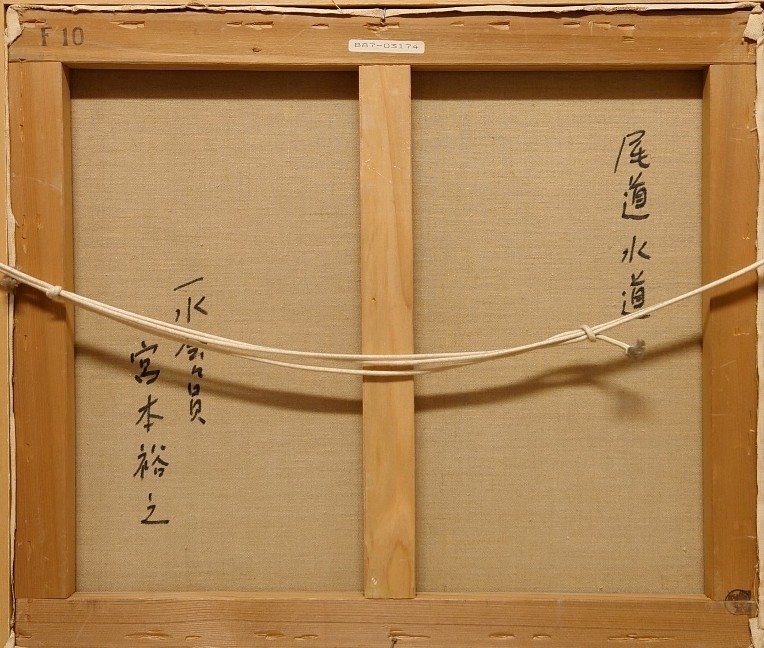 F 10
BA7-03174
尾道水道
一水会会員
宮本裕之